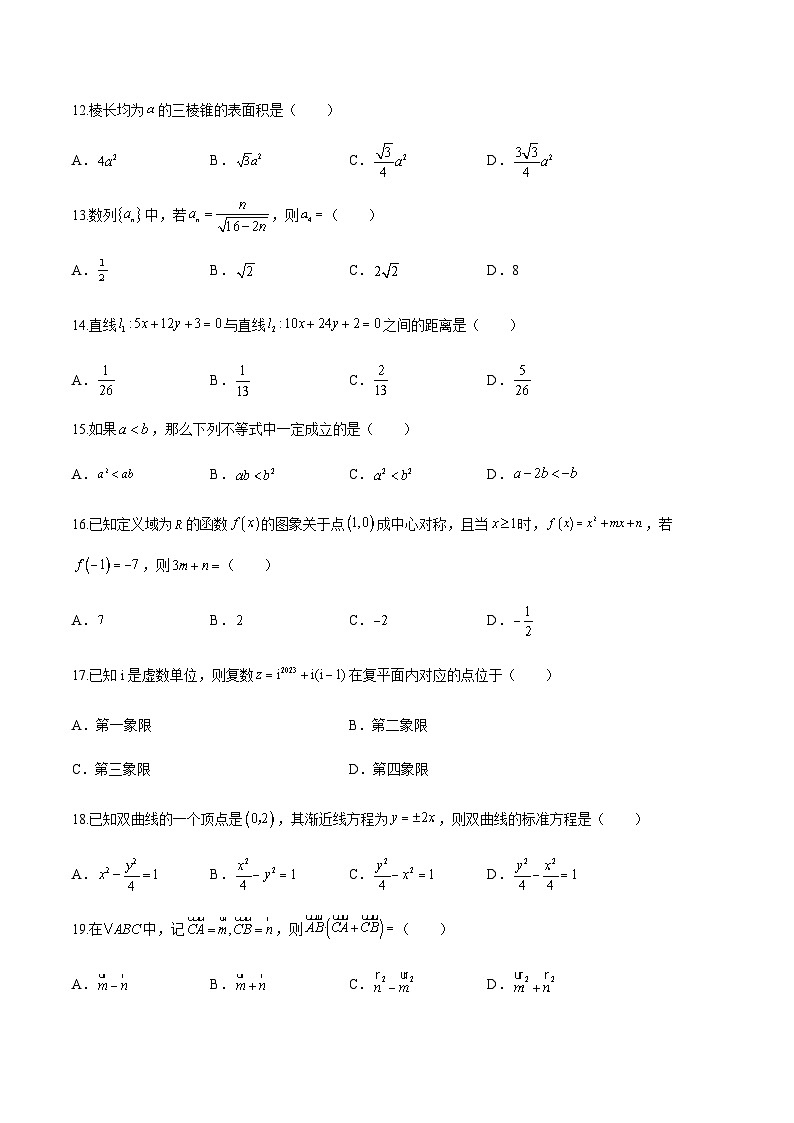 12.棱长均为a的三棱锥的表面积是（　　）
A．4a²　B．√3a²　C．√3/4 a²　D．3√3/4 a²
13.数列{aₙ}中，若aₙ = n/√(16−2n)，则a₄ =（　　）
A．1/2　B．√2　C．2√2　D．8
14.直线l₁:5x+12y+3=0与直线l₂:10x+24y+2=0之间的距离是（　　）
A．1/26　B．1/13　C．2/13　D．5/26
15.如果a<b，那么下列不等式中一定成立的是（　　）
A．a²<ab　B．ab<b²　C．a²<b²　D．a−2b<−b
16.已知定义域为R的函数f(x)的图象关于点(1,0)成中心对称，且当x≥1时，f(x)=x²+mx+n，若
f(−1)=−7，则3m+n=（　　）
A．7　B．2　C．−2　D．−1/2
17.已知i是虚数单位，则复数z=i²⁰²³+i(i−1)在复平面内对应的点位于（　　）
A．第一象限　B．第二象限
C．第三象限　D．第四象限
18.已知双曲线的一个顶点是(0,2)，其渐近线方程为y=±2x，则双曲线的标准方程是（　　）
A．x²−y²/4=1　B．x²/4−y²=1　C．y²/4−x²=1　D．y²/4−x²/4=1
19.在VABC中，记CA=m,CB=n，则AB·(CA+CB)=（　　）
A．m−n　B．m+n　C．n²−m²　D．m²+n²